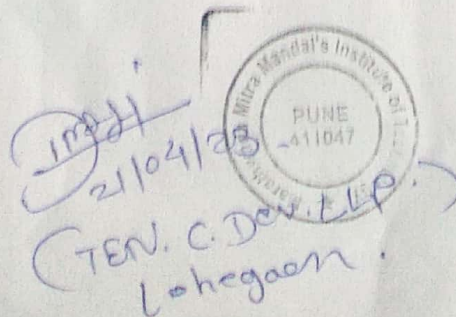 Mitra Mandal's Institute of
PUNE
411047
21/04/23
(TEN. C. Dev. LLP.)
Lohegaon.